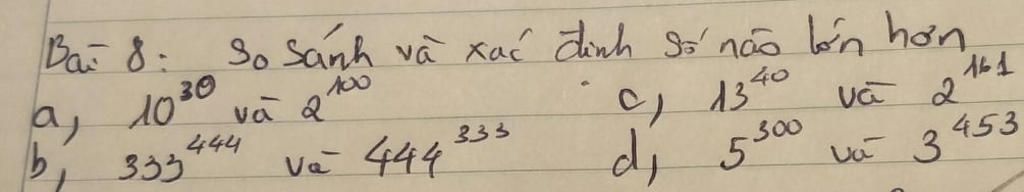 Bài 8: So sánh và xác định số nào lớn hơn
a, 10³⁰ và 2¹⁰⁰ c, 13⁴⁰ và 2¹⁶¹
b, 333⁴⁴⁴ và 444³³³ d, 5³⁰⁰ và 3⁴⁵³